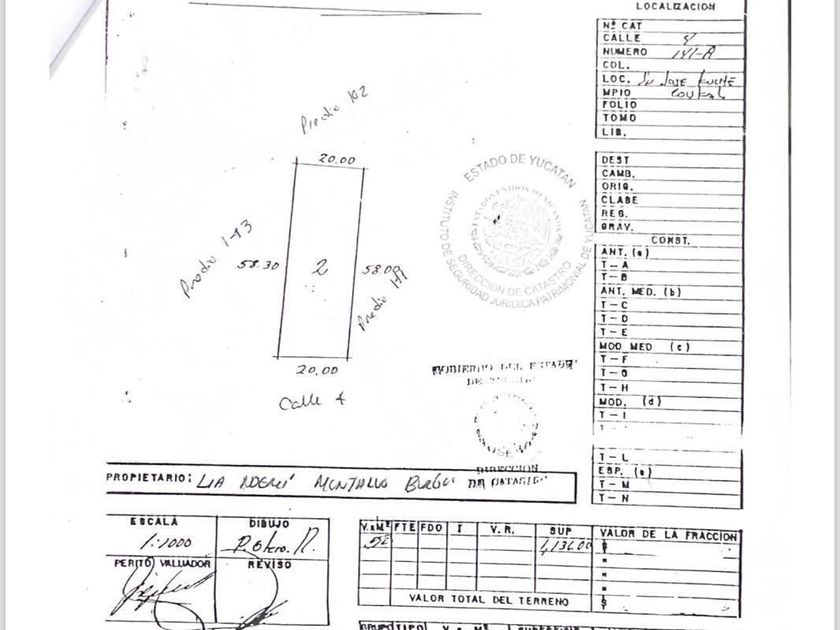 LOCALIZACION
Nº CAT
CALLE 4
NUMERO 141-A
COL.
LOC. Sn JOSE
MPIO
FOLIO
TOMO
LIB.
DEST
CAMB.
ORIG.
CLASE
REG.
GRAV.
CONST.
ANT. (a)
T-A
T-B
ANT. MED. (b)
T-C
T-D
T-E
MOD MED (c)
T-F
T-G
T-H
MOD. (d)
T-I
T-L
ESP. (e)
T-M
T-N
Predio 142
20.00
Predio 143
58.30
2
58.00
Predio 141
20.00
Calle 4
ESTADO DE YUCATAN
ESTADOS UNIDOS MEXICANOS
DIRECCION DE CATASTRO
INSTITUTO DE SEGURIDAD JURIDICA PATRIMONIAL DE YUCATAN
GOBIERNO DEL ESTADO
DE
DIRECCION
DE CATASTRO
PROPIETARIO: LIA NOEMÍ MONTALVO
ESCALA
1:1000
DIBUJO
PERITO VALUADOR
REVISO
V.xM² FTE FDO I V.R. SUP VALOR DE LA FRACCION
1,136.00 $
"
"
"
VALOR TOTAL DEL TERRENO $